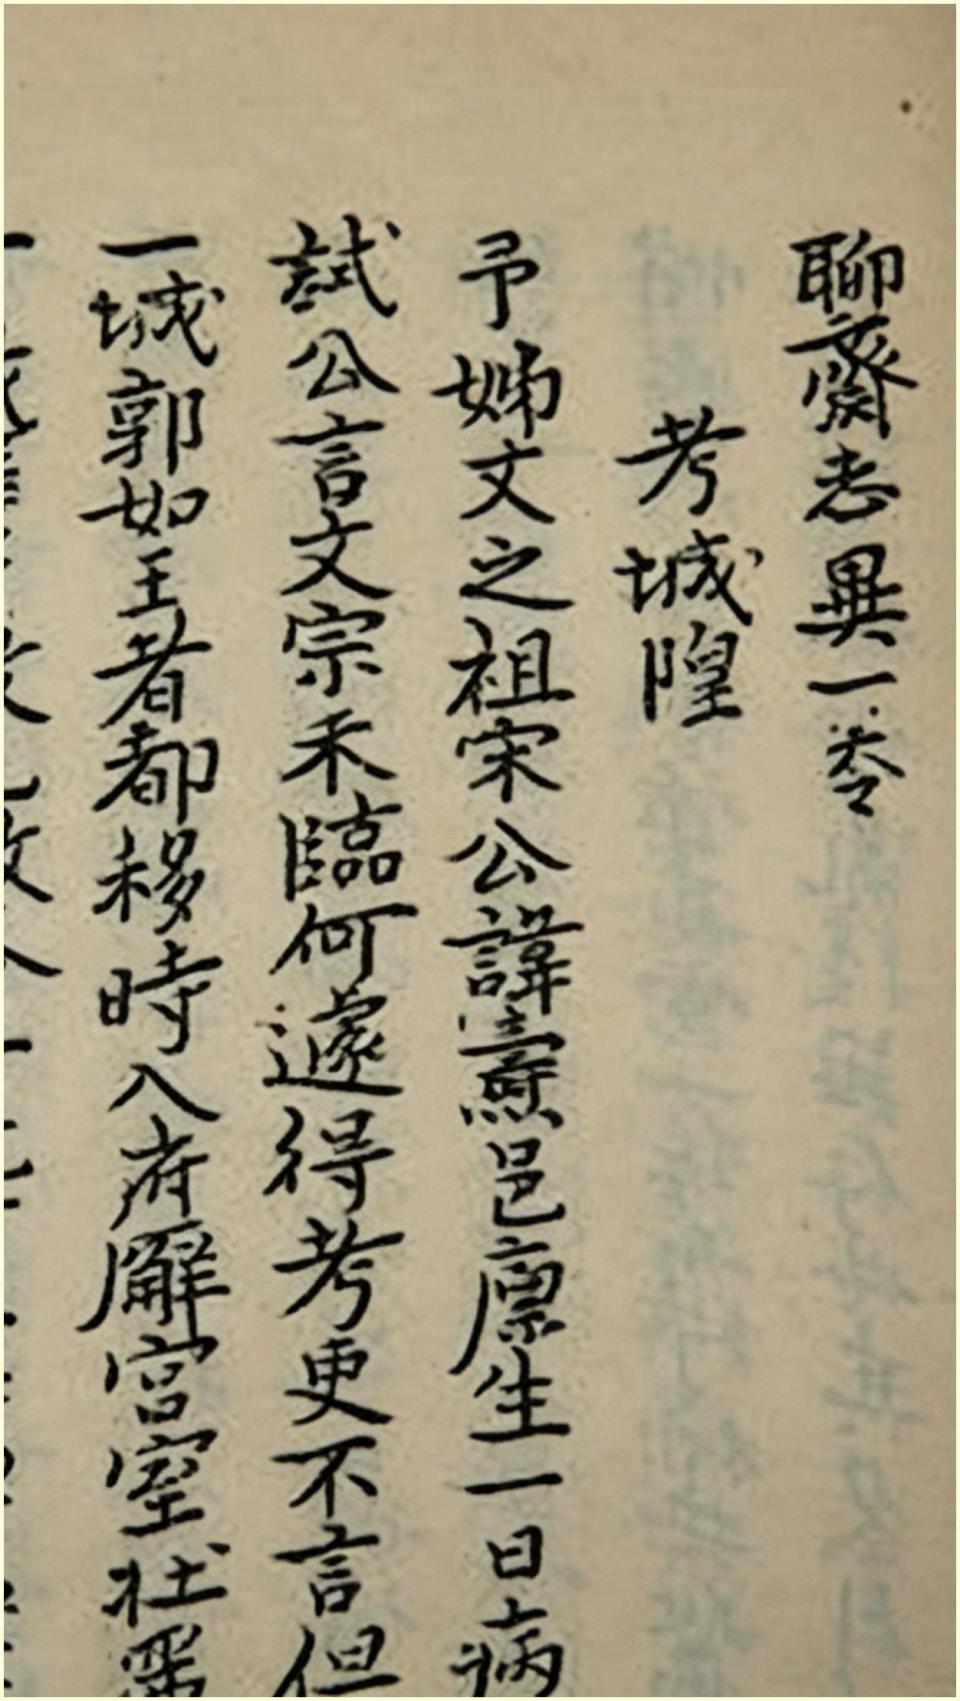 聊齋志異一卷
考城隍
予姊丈之祖宋公諱燾邑廪生一日病
試公言文宗未臨何遽得考吏不言但
一城郭如王者都移時入府廨宮室壮麗